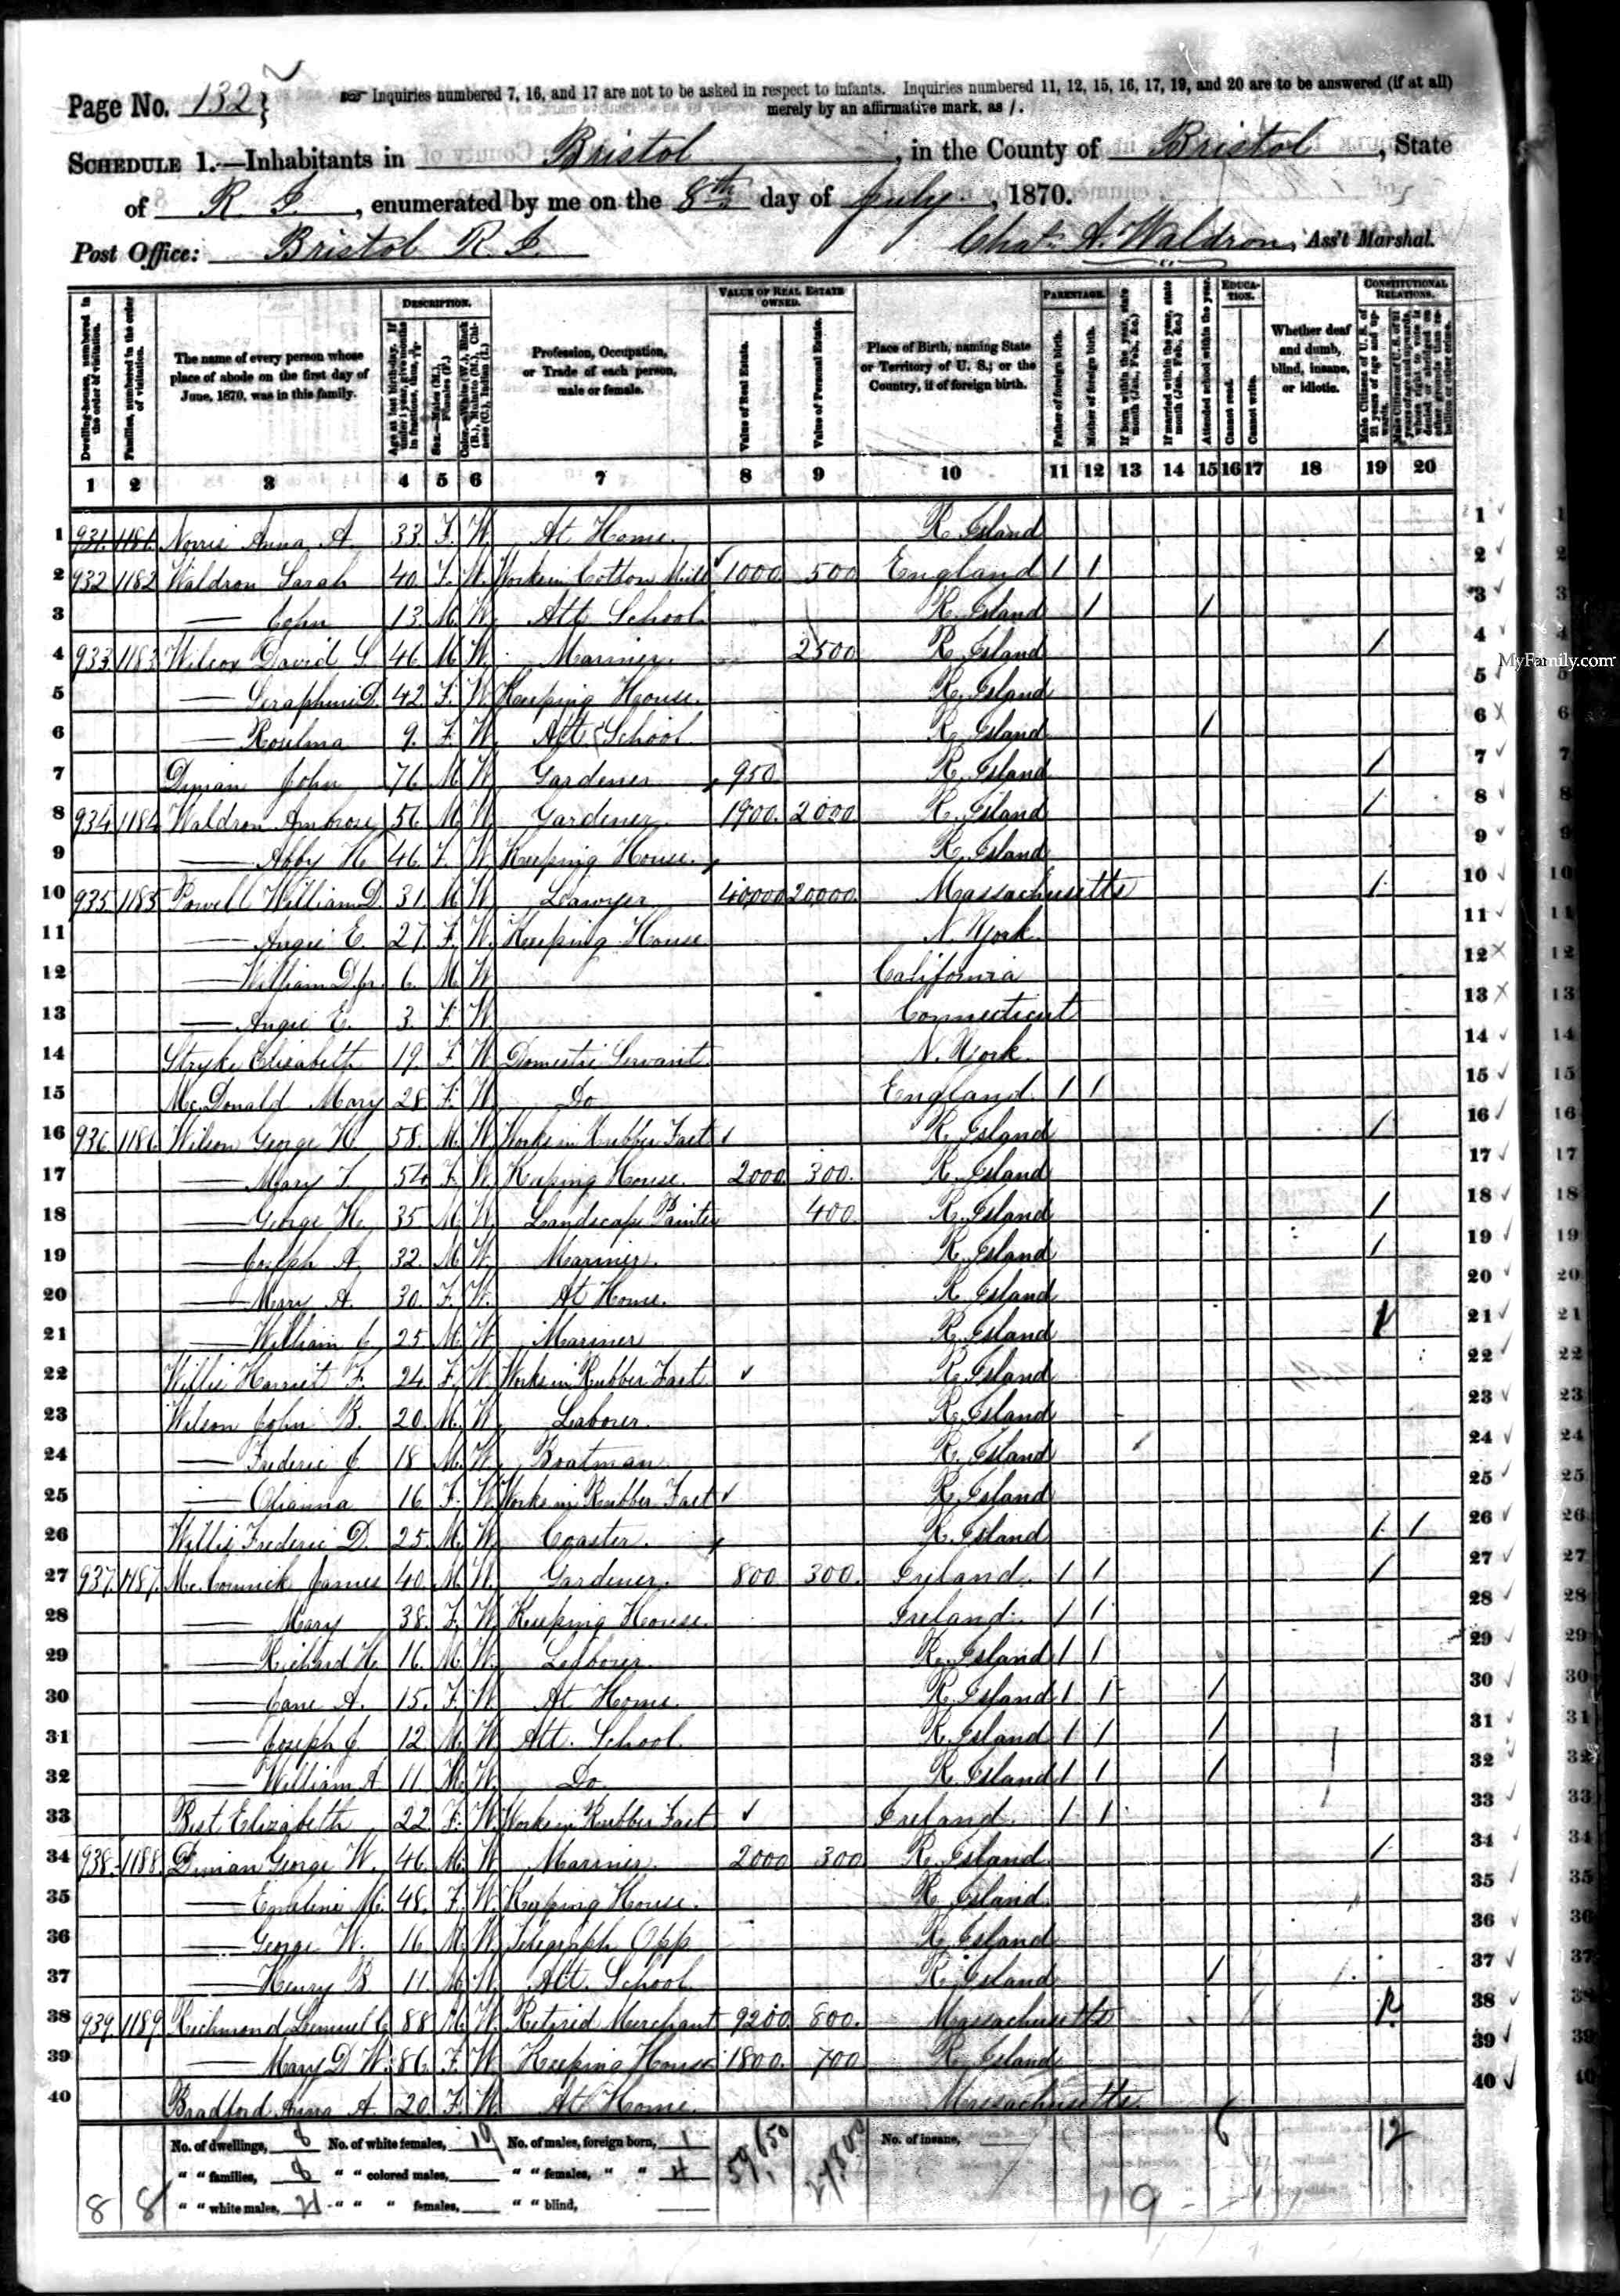 Page No. 132
Inquiries numbered 7, 16, and 17 are not to be asked in respect to infants. Inquiries numbered 11, 12, 15, 16, 17, 19, and 20 are to be answered (if at all)
merely by an affirmative mark, as /.
SCHEDULE 1.—Inhabitants in Bristol, in the County of Bristol, State
of R. I., enumerated by me on the 8th day of July, 1870.
Post Office: Bristol R. I. Chas. A. Waldron, Ass't Marshal.
Dwelling-houses, numbered in the order of visitation.
Families, numbered in the order of visitation.
The name of every person whose place of abode on the first day of June, 1870, was in this family.
DESCRIPTION.
Age at last birth-day. If under 1 year, give months in fractions, thus, 3/12
Sex.—Males (M.), Females (F.)
Color.—White (W.), Black (B.), Mulatto (M.), Chinese (C.), Indian (I.)
Profession, Occupation, or Trade of each person, male or female.
VALUE OF REAL ESTATE OWNED.
Value of Real Estate.
Value of Personal Estate.
Place of Birth, naming State or Territory of U. S.; or the Country, if of foreign birth.
PARENTAGE.
Father of foreign birth.
Mother of foreign birth.
If born within the year, state month (Jan., Feb., &c.)
If married within the year, state month (Jan., Feb., &c.)
Attended school within the year.
EDUCATION.
Cannot read.
Cannot write.
Whether deaf and dumb, blind, insane, or idiotic.
CONSTITUTIONAL RELATIONS.
Male Citizens of U. S. of 21 years of age and upwards.
Male Citizens of U. S. of 21 years of age and upwards, whose right to vote is denied or abridged on other grounds than rebellion or other crime.
1 2 3 4 5 6 7 8 9 10 11 12 13 14 15 16 17 18 19 20
1 931. 1181. Norris Anna A. 33. F. W. At Home. R. Island 1
2 932 1182 Waldron Sarah 40. F. W. Works in Cotton Mill 1000 500 England / / 2
3 — John 13. M. W. Att. School. R. Island / / 3
4 933 1183 Wilcox David S. 46 M. W. Mariner. 2500 R. Island / 4
5 — Seraphine D. 42. F. W. Keeping House. R. Island 5
6 — Roselma 9. F. W. Att. School R. Island / 6
7 Diman John 76. M. W. Gardener 950 R. Island / 7
8 934 1184 Waldron Ambrose 56 M. W. Gardener. 1900. 2000 R. Island / 8
9 — Abby H. 46. F. W. Keeping House. R. Island 9
10 935. 1185 Powell William D. 31. M. W. Lawyer 40,000 20,000. Massachusetts / 10
11 — Angie E. 27. F. W. Keeping House. N. York. 11
12 — William D. jr. 6. M. W. California 12
13 — Angie E. 3. F. W. Connecticut 13
14 Stryke Elizabeth 19. F. W. Domestic Servant. N. York. 14
15 Mc.Donald Mary 28. F. W. Do England. / / 15
16 936. 1186. Wilson George H. 58. M. W. Works in Rubber Fact R. Island / 16
17 — Mary T. 54. F. W. Keeping House. 2000. 300. R. Island 17
18 — George H. 35 M. W. Landscape Painter 400. R. Island / 18
19 — Joseph A. 32. M. W. Mariner. R. Island / 19
20 — Mary A. 30. F. W. At Home. R. Island 20
21 — William C. 25 M. W. Mariner R. Island / 21
22 Willis Harriet F. 24. F. W. Works in Rubber Fact R. Island 22
23 Wilson John B. 20. M. W. Laborer. R. Island 23
24 — Frederic J 18 M. W. Boatman R. Island 24
25 — Olianna 16 F. W. Works in Rubber Fact R. Island 25
26 Willis Frederic D. 25. M. W. Coaster. R. Island / / 26
27 937. 1187. Mc.Cormick James 40. M. W. Gardener. 800 300. Ireland. / / / 27
28 — Mary 38. F. W. Keeping House. Ireland. / / 28
29 — Richard H. 16. M. W. Laborer. R. Island / / 29
30 — Jane A. 15. F. W. At Home. R. Island / / / 30
31 — Joseph J 12 M. W. Att. School. R. Island / / / 31
32 — William A 11. M. W. Do. R. Island / / / 32
33 Best Elizabeth 22 F. W. Works in Rubber Fact Ireland. / / 33
34 938. 1188. Diman George W. 46. M. W. Mariner. 2000 300 R. Island / 34
35 — Emeline M. 48. F. W. Keeping House. R. Island. 35
36 — George W. 16. M. W. Telegraph Opp R. Island 36
37 — Henry B. 11. M. W. Att. School R. Island / 37
38 939. 1189 Richmond Lemuel C. 88 M. W. Retired Merchant 9200. 800. Massachusetts / 38
39 — Mary D W. 86. F. W. Keeping House 1800. 700 R. Island 39
40 Bradford Anna A. 20 F. W. At Home. Massachusetts. 40
No. of dwellings, 8 No. of white females, 19 No. of males, foreign born, 1 59,650 27,800 No. of insane, 6 12
" " families, 8 " " colored males, " " females, " " 4
8 8 " " white males, 21 " " " females, " " blind,
MyFamily.com